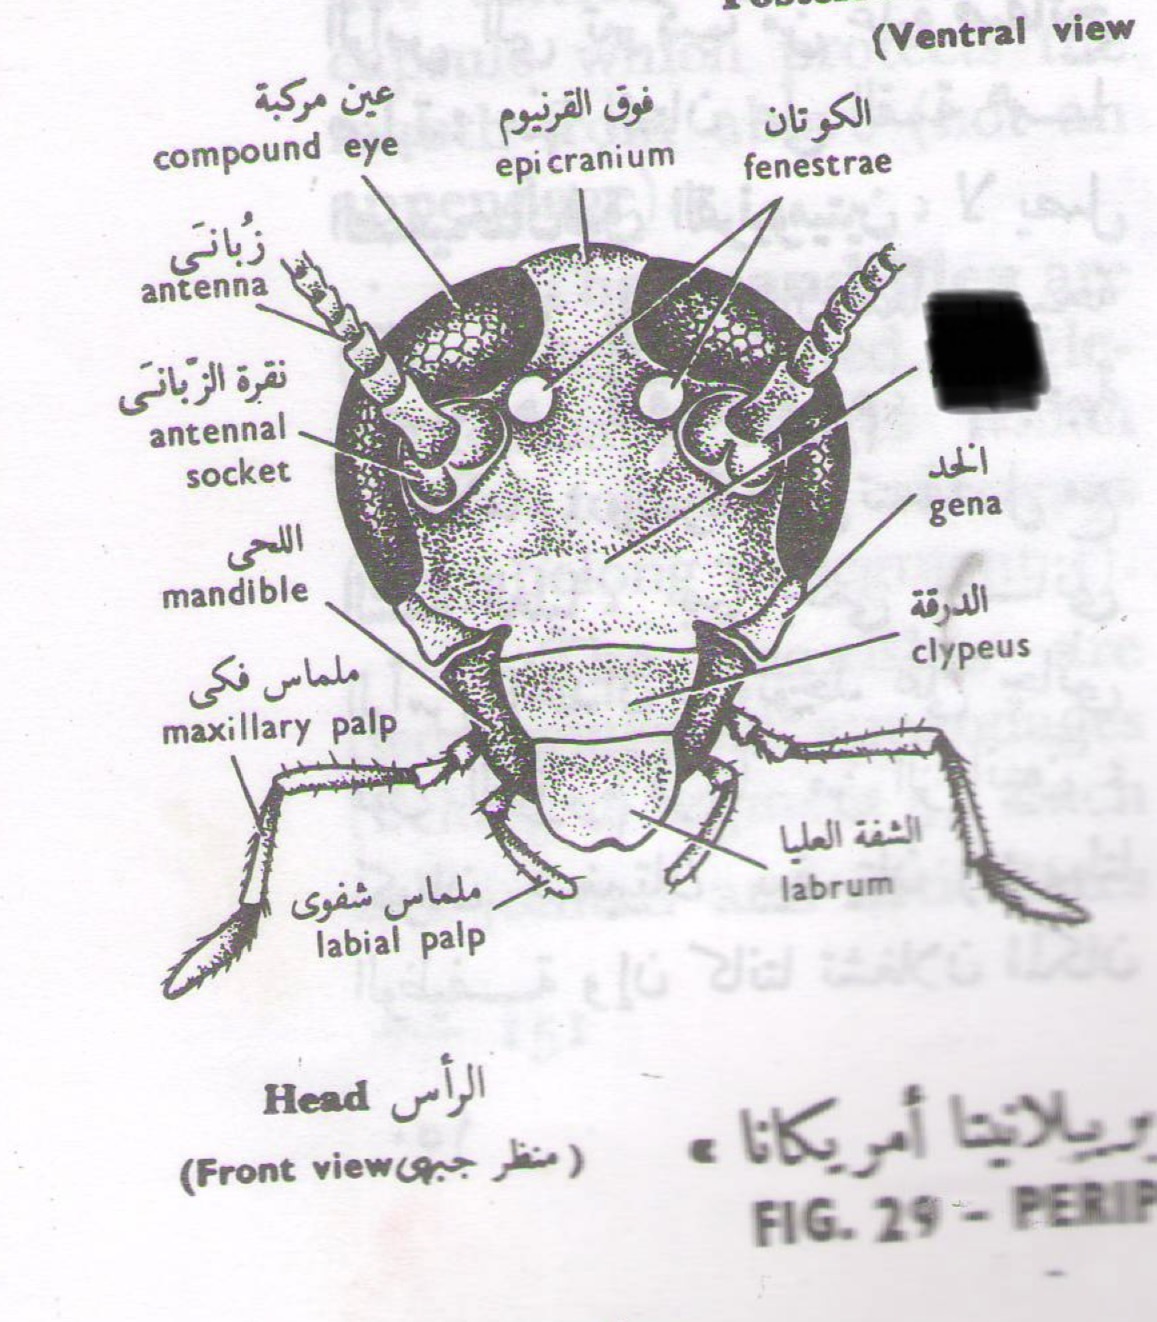 (Ventral view
عين مركبة
compound eye
فوق القرنيوم
epicranium
الكوتان
fenestrae
زُبانَى
antenna
نقرة الزّبانَى
antennal
socket
الخد
gena
اللحى
mandible
الدرقة
clypeus
ملماس فكى
maxillary palp
الشفة العليا
labrum
ملماس شفوى
labial palp
Head الرأس
(Front view منظر جبهى)
أمريكانا »
FIG. 29 - PERIP